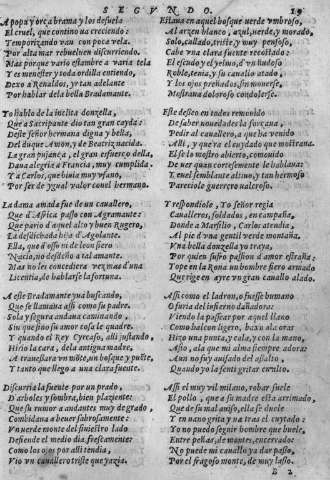 SEGVNDO. 19
A popa y orça brama y los desuela
El cruel, que contino va creciendo:
Temporizando van con poca vela.
Por alta mar rebueluen discurriendo.
Mas porque vario estambre a varia tela
Y es menester y toda ordilla entiendo,
Dexo a Renaldos, y tan adelante
Por hablar de la bella Bradamante.
Yo hablo de la inclita donzella,
Que a Sacripante dio tan gran cayda:
Deste señor hermana digna y bella,
Del duque Amon, y de Beatriz nacida.
La gran pujança, el gran esfuerço della,
Daua alegria a Francia, muy cumplida.
Y a Carlos, que
Por ser de ygual valor con el hermano.
La dama amada fue de vn cauallero,
Que d'Africa passo con Agramante:
Que pario d'aquel alto y buen Rugero,
La desdichada hija d'Agolante
Ella, que d'osso ni de leon fiero
Nacio, no desdeño a tal amante.
Mas no les concediera vez mas d'vna
Licencia, de hablarse la fortuna.
A este Bradamante yua buscando,
Hijo se llamaua assi como su padre.
Sola y segura andaua caminando,
Sin que sino su amor cosa le quadre.
Y quando el Rey Cyrcasso, alli justando
Hirio la cara, de la antigua madre,
A trauessara vn mõte, vn bosque y puēte,
Y tanto que llego a una fuente.
Discurria la fuente por vn prado,
D'arboles y sombra, bien plaziente:
Que su rumor a andantes muy de grado,
Combidaua a beuer sabrosamente:
Vn verde monte del siniestro lado
Defiende el medio dia frescamente:
Como los ojos por alli tendia,
Vio vn cauallero triste que yazia.
Estaua en aquel bosque verde vmbroso,
Al arzen blanco, azul, verde, y morado,
Solo, callado, triste, y muy pensoso,
Cabe vna clara fuente recostado:
El escudo y el yelmo, d'vn hudoso
Roble, tenia, y su cauallo atado,
Y los ojos preñados, sin mouerse.
Mostraua doloroso condolerse.
Este desseo en todos remouido
De saber nouedades la forçaua,
Pedir al cauallero, a que ha venido
Alli, y que era el cuydado que mostraua.
El se lo mostro abierto, comouido
De ver quan cortesmente le hablaua:
Y en el semblante altiuo, y tan hermoso
Pareciole guerrero valeroso.
Y respondiole, Yo señor regia
Caualleros, soldados, en campaña,
Donde a Marsilio, Carlos atendia,
Al pie d'vna gentil verde montaña,
Vna bella donzella yo traya,
Por quien sufro passion d'amor estraña:
Tope en la Rona vn hombre fiero armado
Que rige en ayre vn gran cauallo alado.
Assi como el ladron, o fuesse humano
O furia del infierno dañadora:
Viendo la passear por aquel llano
Como halcon ligero, baxo a la ora:
Hizo vna punta, y cala, y con la mano,
Asio, ala que mi alma siempre adora:
Aun no fuy auisado del assalto,
Quando yo la senti gritar en alto.
Assi el muy vil milano, robar suele
El pollo, que a su madre esta arrimado,
Que de su mal auiso, ella se duele
Y en vano grita y va tras el cuytado:
Yo no puedo seguir hombre que buele,
Entre peñas, de montes, encerrado:
No puede mi cauallo ya dar passo,
Por el fragoso monte, de muy lasso.
D 2